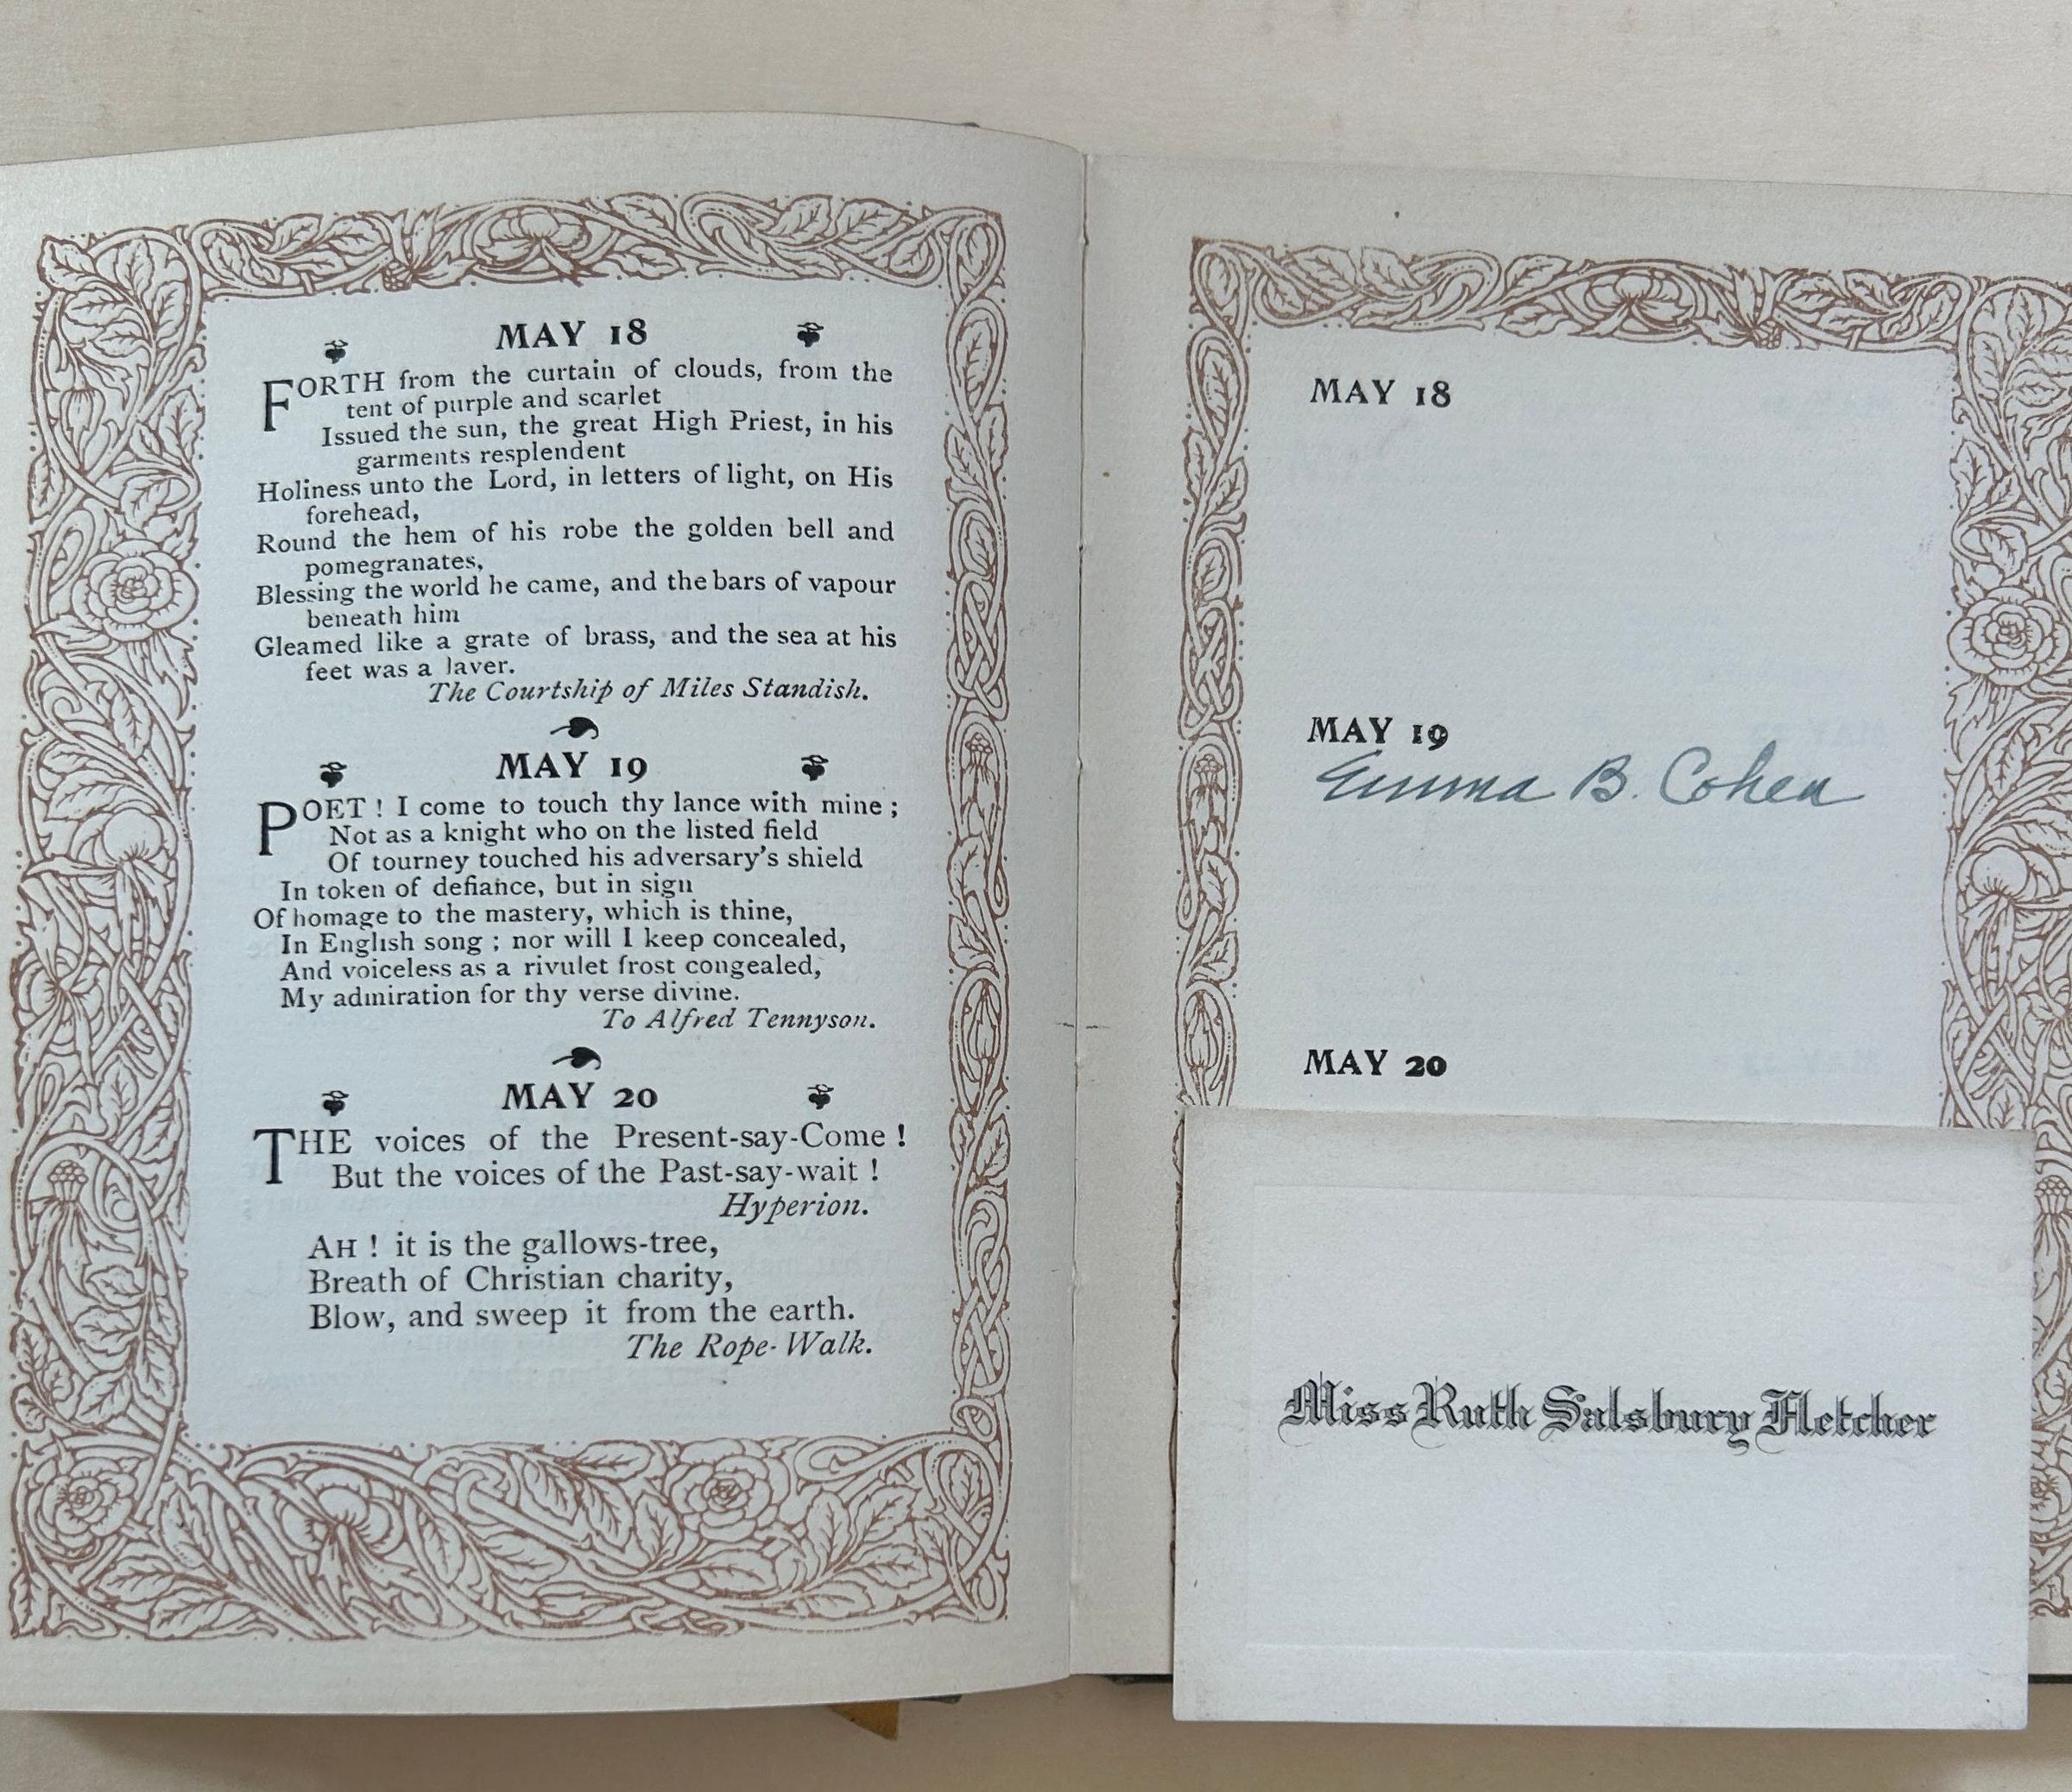 MAY 18
FORTH from the curtain of clouds, from the
tent of purple and scarlet
Issued the sun, the great High Priest, in his
garments resplendent
Holiness unto the Lord, in letters of light, on His
forehead,
Round the hem of his robe the golden bell and
pomegranates,
Blessing the world he came, and the bars of vapour
beneath him
Gleamed like a grate of brass, and the sea at his
feet was a laver.
The Courtship of Miles Standish.
MAY 19
POET ! I come to touch thy lance with mine ;
Not as a knight who on the listed field
Of tourney touched his adversary's shield
In token of defiance, but in sign
Of homage to the mastery, which is thine,
In English song ; nor will I keep concealed,
And voiceless as a rivulet frost congealed,
My admiration for thy verse divine.
To Alfred Tennyson.
MAY 20
THE voices of the Present-say-Come !
But the voices of the Past-say-wait !
Hyperion.
AH ! it is the gallows-tree,
Breath of Christian charity,
Blow, and sweep it from the earth.
The Rope-Walk.
MAY 18
MAY 19
Emma B. Cohen
MAY 20
Miss Ruth Salsbury Fletcher